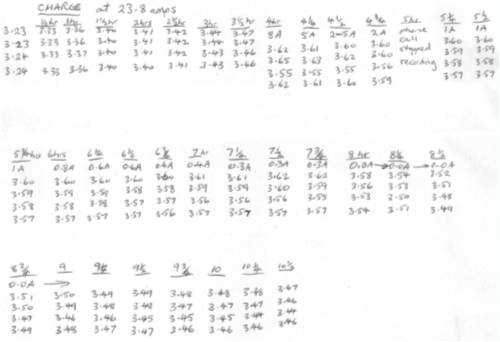 CHARGE at 23.8 amps
½hr 1hr 1½hr 2hrs 2½hr 3hr 3½hr 4hr 4¼ 4½ 4¾ 5hr 5¼ 5½
8A 5A 2.5A 2A phone 1A 1A
3.23 3.33 3.36 3.40 3.41 3.42 3.44 3.47 call 3.60 3.60
3.23 3.33 3.36 3.40 3.41 3.42 3.44 3.47 3.62 3.61 3.60 3.60 stopped 3.59 3.59
3.24 3.33 3.37 3.40 3.41 3.42 3.44 3.46 3.65 3.63 3.62 3.60 recording 3.58 3.58
3.24 3.33 3.36 3.40 3.40 3.41 3.43 3.46 3.55 3.55 3.55 3.56 3.57 3.57
3.62 3.61 3.60 3.59
5¾hrs 6hrs 6¼ 6½ 6¾ 7hr 7¼ 7½ 7¾ 8hr 8¼ 8½
1A 0.8A 0.6A 0.6A 0.4A 0.4A 0.3A 0.3A 0.3A 0.0A → 0.0A → 0.0A
3.60 3.60 3.60 3.60 3.60 3.61 3.61 3.62 3.62 3.58 3.54 3.52
3.59 3.58 3.59 3.58 3.58 3.59 3.59 3.60 3.59 3.56 3.53 3.51
3.58 3.58 3.58 3.57 3.57 3.56 3.56 3.56 3.55 3.53 3.50 3.48
3.57 3.57 3.57 3.57 3.56 3.57 3.57 3.57 3.57 3.54 3.51 3.49
8¾ 9 9¼ 9½ 9¾ 10 10¼ 10½
0.0A →
3.51 3.50 3.49 3.49 3.48 3.48 3.48 3.47
3.50 3.49 3.48 3.48 3.47 3.47 3.47 3.46
3.47 3.46 3.46 3.45 3.45 3.45 3.44 3.44
3.49 3.48 3.47 3.47 3.46 3.46 3.46 3.46